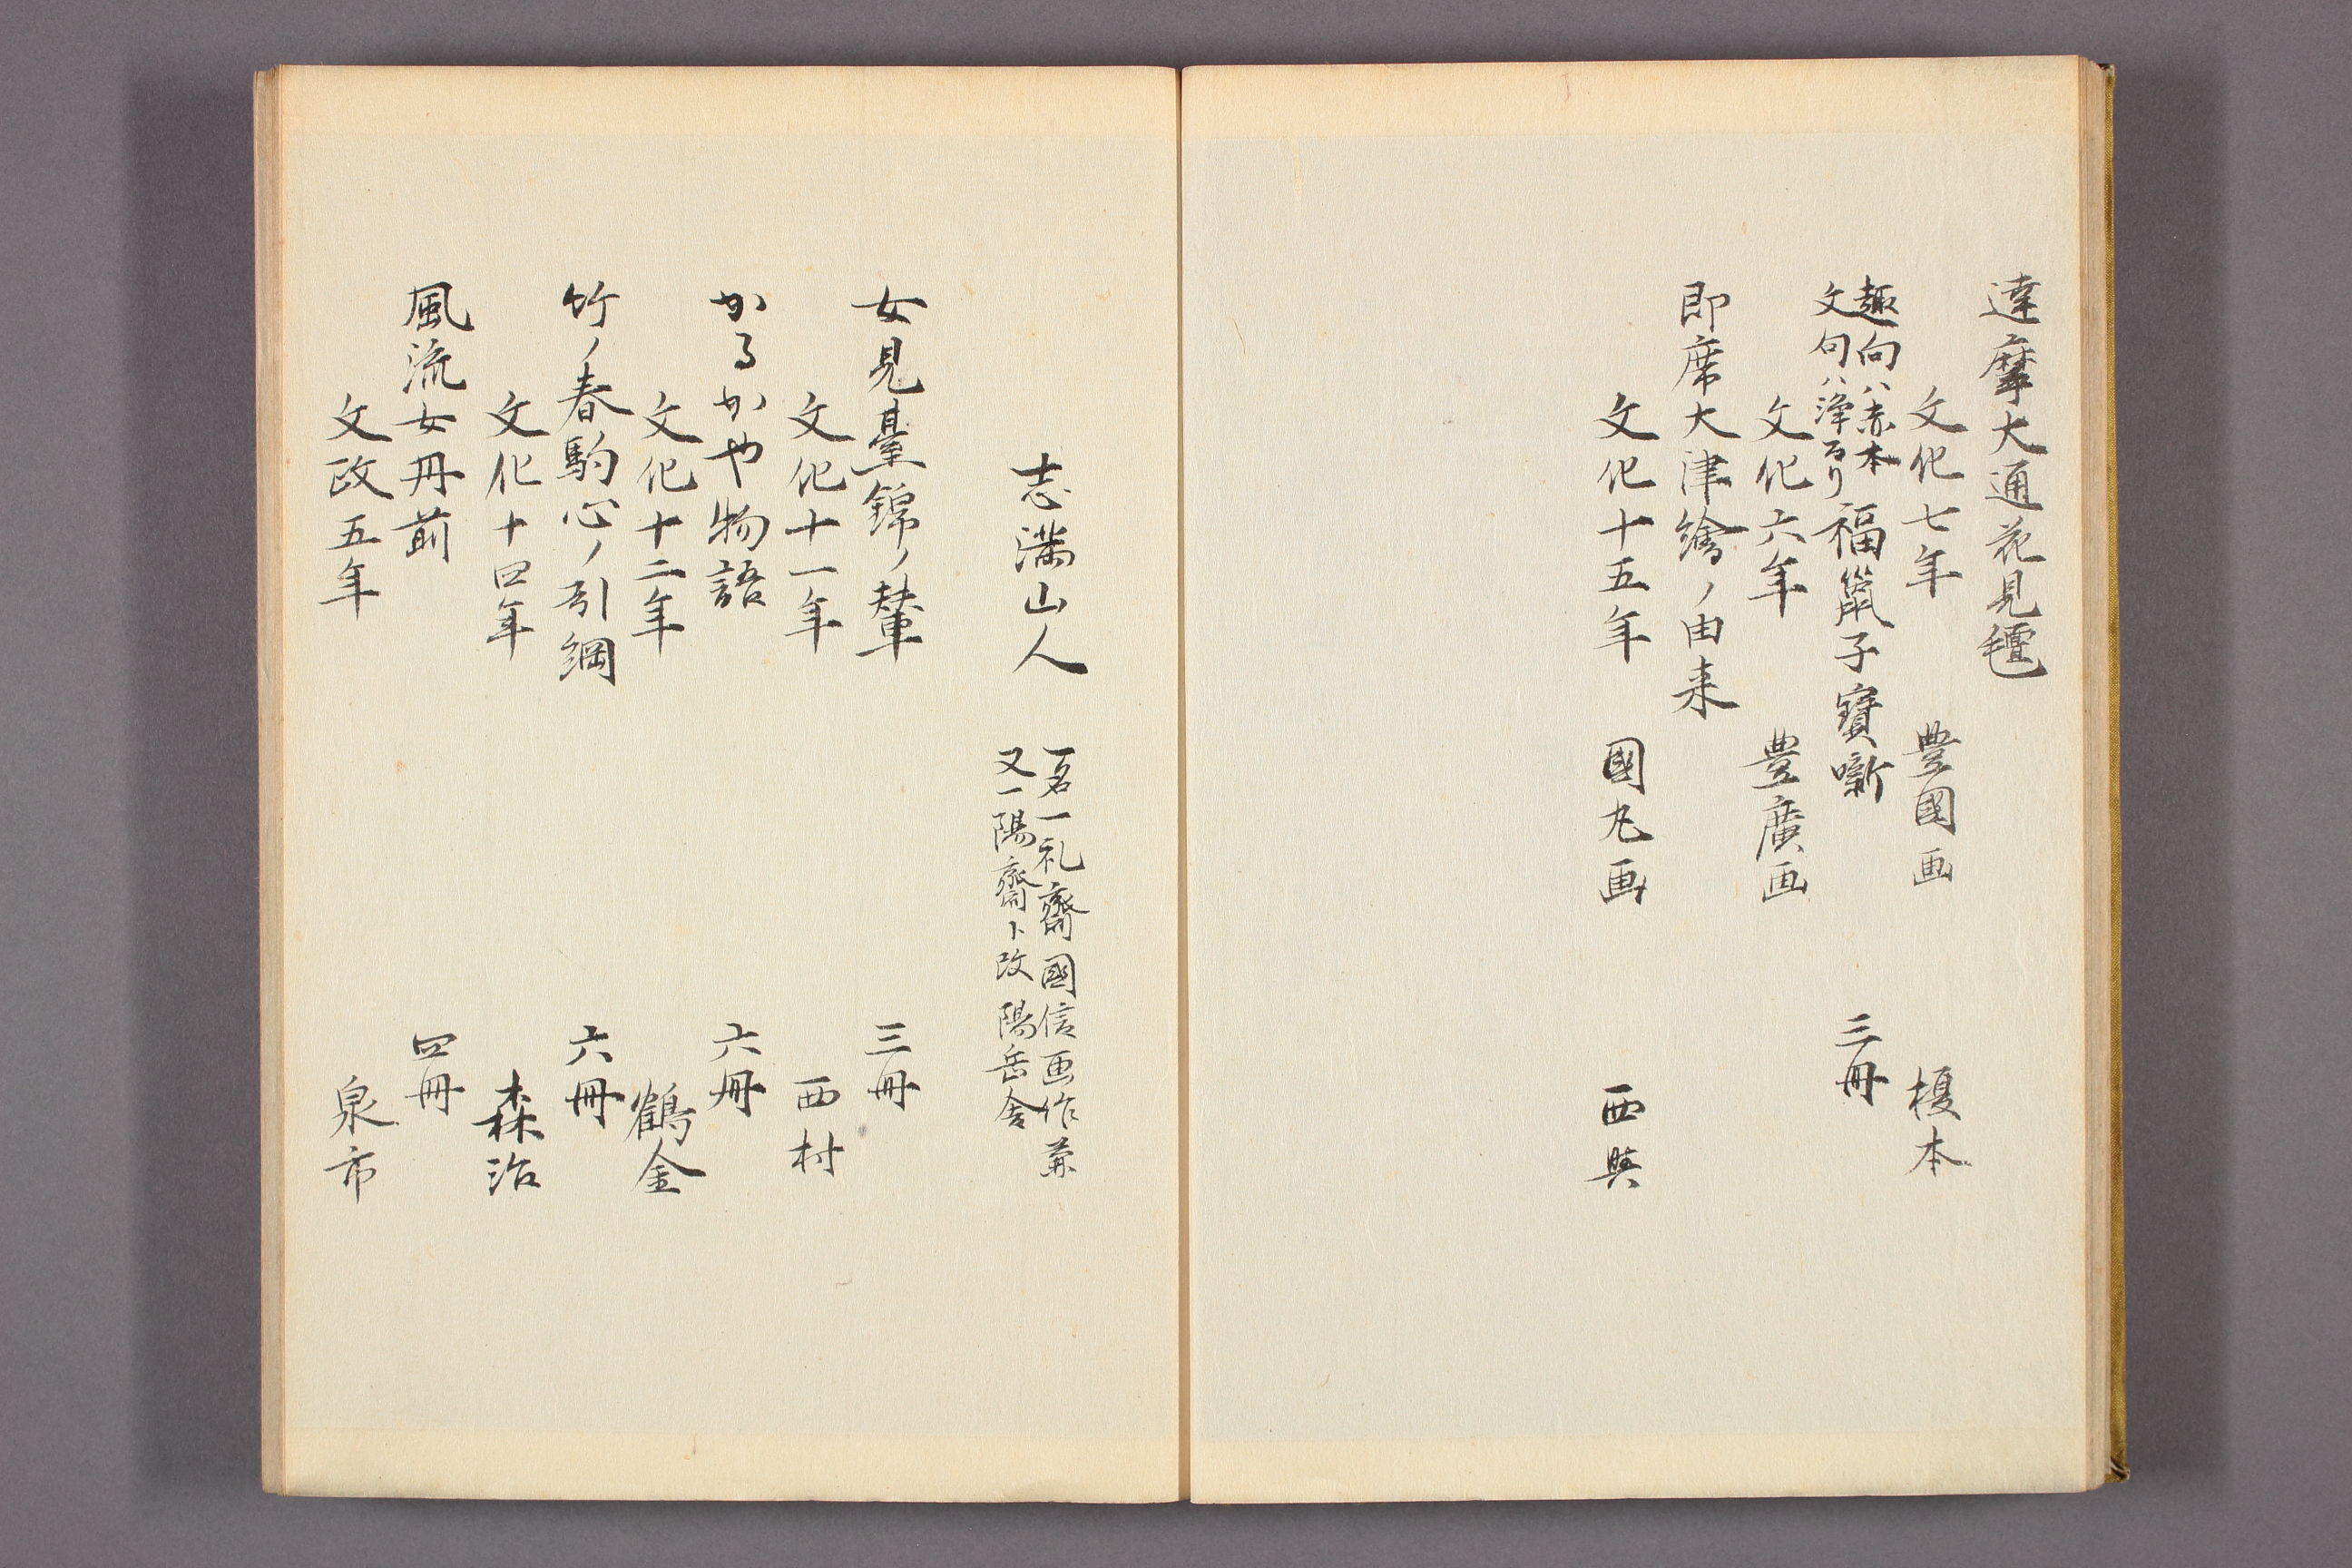 達摩大通花見氈
文化七年　豊國画　榎本
趣向ハ赤本
文句ハ浄るり
福鼠子寶噺　三冊
文化六年　豊廣画
即席大津繪ノ由来
文化十五年　國丸画　西與
志満山人
一名一礼齋國信画作兼
又一陽齋ト改陽岳舎
女見臺錦ノ輦　三冊
文化十一年　西村
かるかや物語　六冊
文化十二年　鶴金
竹ノ春駒心ノ引綱　六冊
文化十四年　森治
風流女丹前　四冊
文政五年　泉市